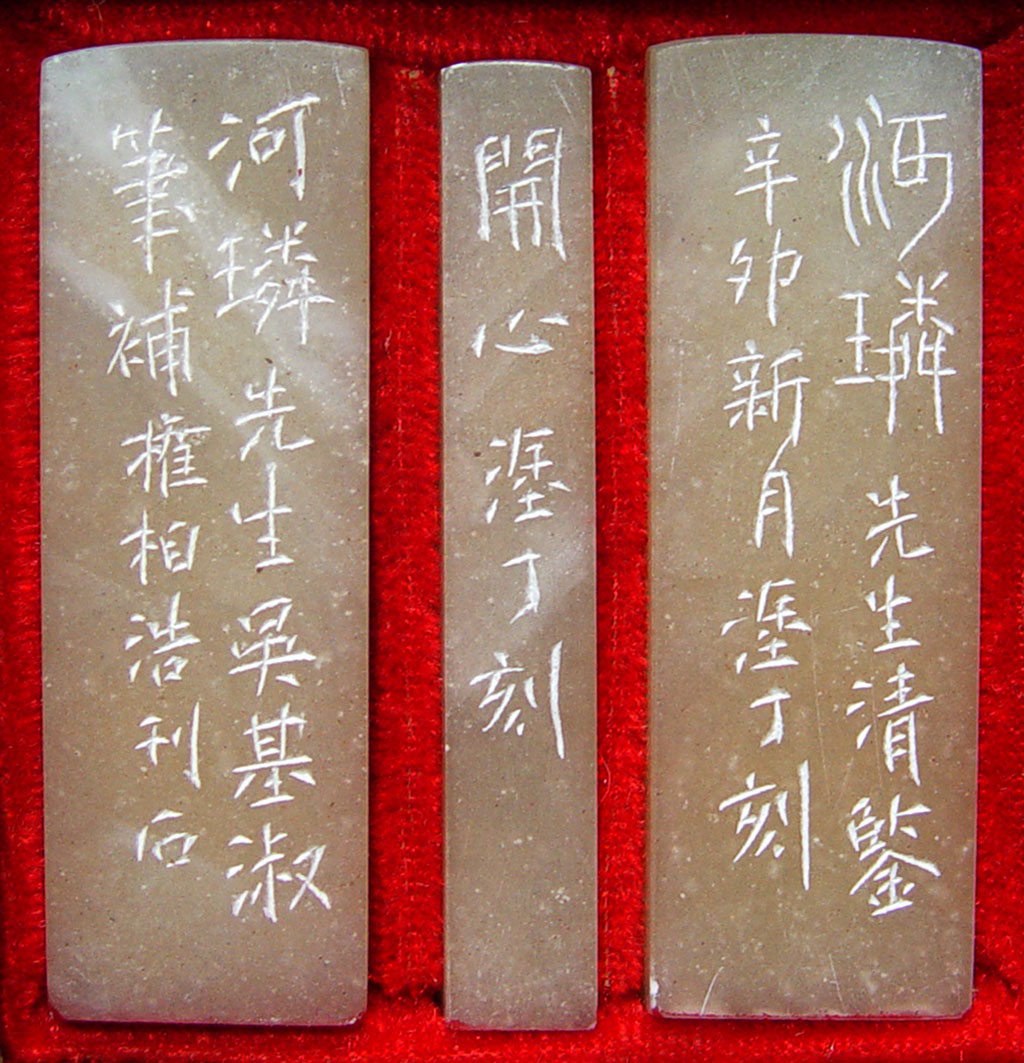 河璘先生清鑒
辛卯新月塗丁刻
開心塗丁刻
河璘先生吳基淑
筆補權柏浩利石